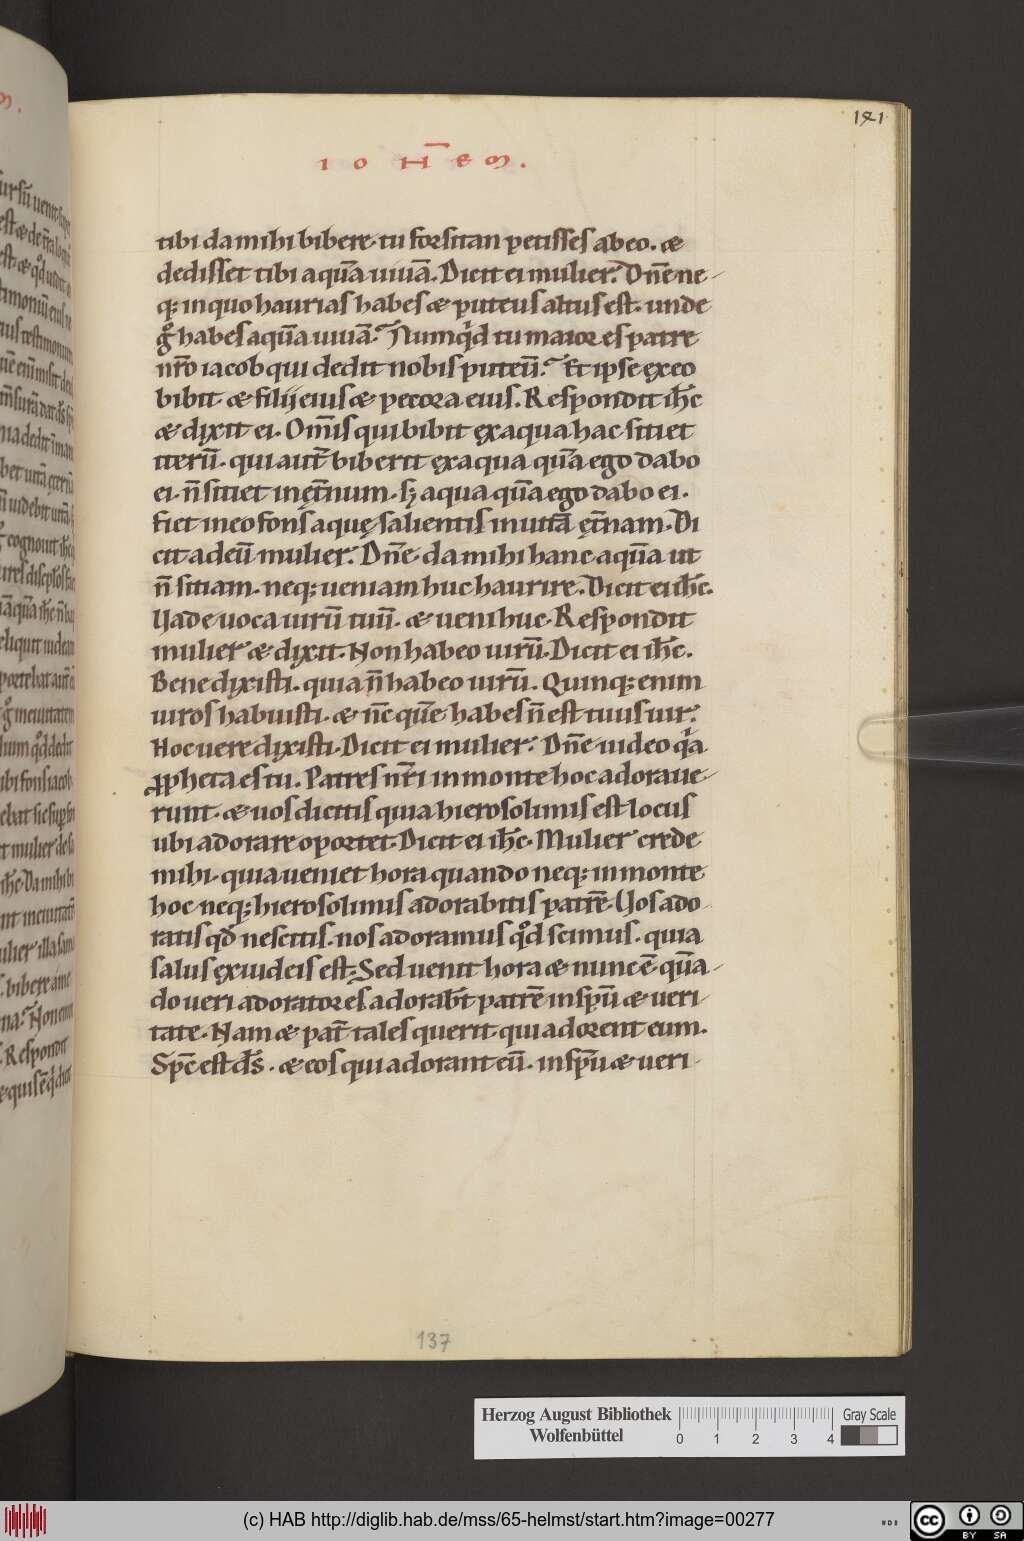 141
IOHEM.
tibi da mihi bibere· tu forsitan petisses ab eo. æ
dedisset tibi aquā uiuā. Dicit ei mulier. Dñe ne-
q; in quo haurias habes æ puteus altus est. unde
gͦ habes aquā uiuā. Numqͥd tu maior es patre
nr̄o iacob qui dedit nobis puteū? Et ipse ex eo
bibit æ filii eius æ pecora eius. Respondit ih̄c
æ dixit ei. Om̄is qui bibit ex aqua hac sitiet
iterū. qui aut̄ biberit ex aqua quā ego dabo
ei. n̄ sitiet in ęt̄num. sꝫ aqua quā ego dabo ei.
fiet in eo fons aquę salientis in uitā ęt̄nam. Di
cit ad eū mulier. Dñe da mihi hanc aquā ut
n̄ sitiam. neq; ueniam huc haurire. Dicit ei ih̄c.
Uade uoca uirū tuū. æ ueni huc. Respondit
mulier æ dixit. Non habeo uirū. Dicit ei ih̄c.
Bene dixisti. quia n̄ habeo uirū. Quinq; enim
uiros habuisti. æ nc̄ quē habes n̄ est tuus uir.
Hoc uere dixisti. Dicit ei mulier. Dñe uideo qͥa
ꝓpheta es tu. Patres nr̄i in monte hoc adoraue-
runt. æ uos dicitis quia hierosolimis est locus
ubi adorare oportet. Dicit ei ih̄c. Mulier crede
mihi. quia ueniet hora quando neq; in monte
hoc neq; hierosolimis adorabitis patrē. Uos ado-
ratis qd̄ nescitis. nos adoramus qͦd scimus. quia
salus ex iudeis est. Sed uenit hora æ nunc ē quā-
do ueri adoratores adorabt̄ patrē in sp̄u æ ueri-
tate. Nam æ pat̄ tales querit qui adorent eum.
Sp̄c est d̄s. æ eos qui adorant eū. in sp̄u æ ueri-
137
Herzog August Bibliothek
Wolfenbüttel
0 1 2 3 4
Gray Scale
(c) HAB http://diglib.hab.de/mss/65-helmst/start.htm?image=00277
cc BY SA